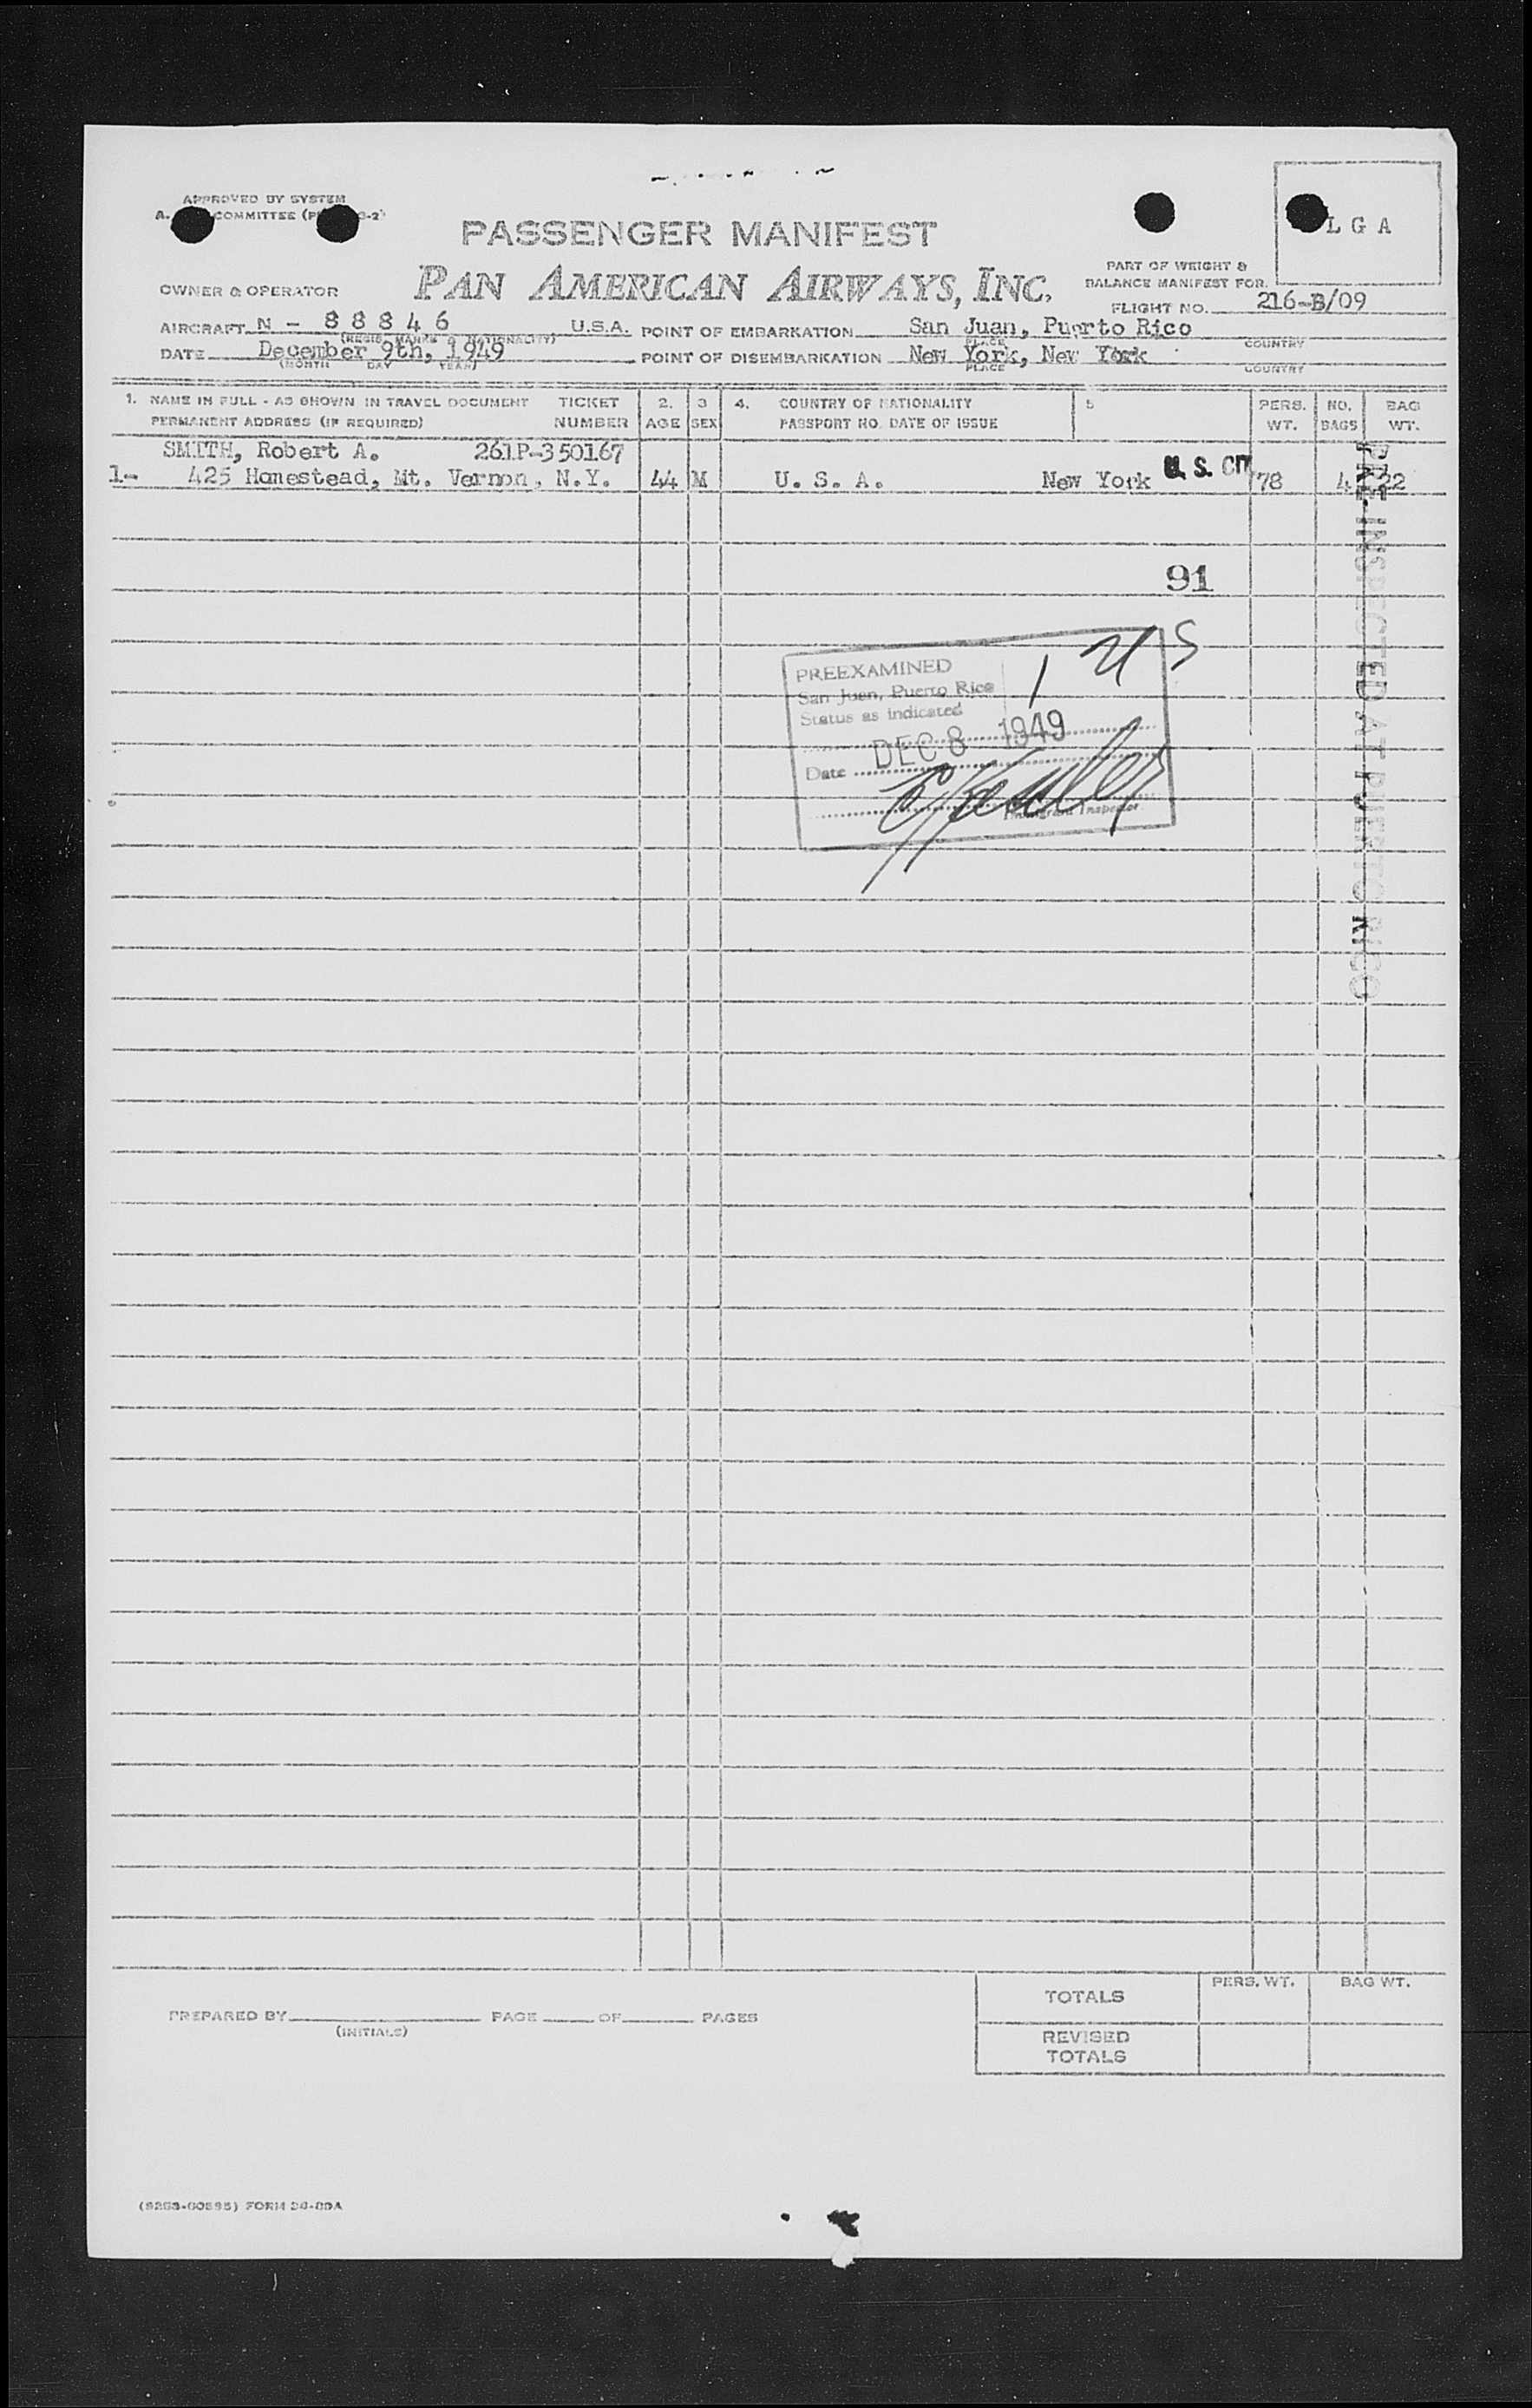 APPROVED BY SYSTEM
COMMITTEE
LGA
PASSENGER MANIFEST
PAN AMERICAN AIRWAYS, INC.
PART OF WEIGHT &
BALANCE MANIFEST FOR
OWNER & OPERATOR
FLIGHT NO. 216-B/09
AIRCRAFT N - 88846 U.S.A. POINT OF EMBARKATION San Juan, Puerto Rico
(REGIS. MARKS & NATIONALITY) PLACE COUNTRY
DATE December 9th, 1949 POINT OF DISEMBARKATION New York, New York
(MONTH DAY YEAR) PLACE COUNTRY
1. NAME IN FULL - AS SHOWN IN TRAVEL DOCUMENT TICKET 2. 3 4. COUNTRY OF NATIONALITY 5 PERS. NO. BAG
PERMANENT ADDRESS (IF REQUIRED) NUMBER AGE SEX PASSPORT NO. DATE OF ISSUE WT. BAGS WT.
SMITH, Robert A. 261P-350167
1- 425 Homestead, Mt. Vernon, N.Y. 44 M U. S. A. New York U. S. CIT 78 4 22
PRE-INSPECTED AT PUERTO RICO
91
PREEXAMINED 1 US
San Juan, Puerto Rico
Status as indicated
DEC 8 1949
Date
Immigrant Inspector
TOTALS PERS. WT. BAG WT.
PREPARED BY PAGE OF PAGES
(INITIALS)
REVISED
TOTALS
FORM